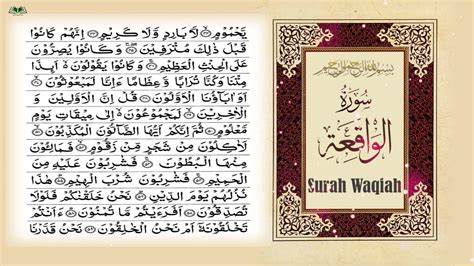 يَّحْمُوْمٍ ۝ لَّا بَارِدٍ وَّلَا كَرِيْمٍ ۝ اِنَّهُمْ كَانُوْا
قَبْلَ ذٰلِكَ مُتْرَفِيْنَ ۝ وَكَانُوْا يُصِرُّوْنَ
عَلَى الْحِنْثِ الْعَظِيْمِ ۝ وَكَانُوْا يَقُوْلُوْنَ اَىِٕذَا
مِتْنَا وَكُنَّا تُرَابًا وَّعِظَامًا ءَاِنَّا لَمَبْعُوْثُوْنَ ۝
اَوَاٰبَآؤُنَا الْاَوَّلُوْنَ ۝ قُلْ اِنَّ الْاَوَّلِيْنَ وَ
الْاٰخِرِيْنَ ۝ لَمَجْمُوْعُوْنَ اِلٰى مِيْقَاتِ يَوْمٍ
مَّعْلُوْمٍ ۝ ثُمَّ اِنَّكُمْ اَيُّهَا الضَّآلُّوْنَ الْمُكَذِّبُوْنَ ۝
لَاٰكِلُوْنَ مِنْ شَجَرٍ مِّنْ زَقُّوْمٍ ۝ فَمَالِـُٔوْنَ
مِنْهَا الْبُطُوْنَ ۝ فَشٰرِبُوْنَ عَلَيْهِ مِنَ
الْحَمِيْمِ ۝ فَشٰرِبُوْنَ شُرْبَ الْهِيْمِ ۝ هٰذَا
نُزُلُهُمْ يَوْمَ الدِّيْنِ ۝ نَحْنُ خَلَقْنٰكُمْ فَلَوْلَا
تُصَدِّقُوْنَ ۝ اَفَرَءَيْتُمْ مَّا تُمْنُوْنَ ۝ ءَاَنْتُمْ
تَخْلُقُوْنَهٗٓ اَمْ نَحْنُ الْخٰلِقُوْنَ ۝ نَحْنُ قَدَّرْنَا
بسم الله الرحمن الرحيم
سُورَةُ
الْوَاقِعَةِ
Surah Waqiah